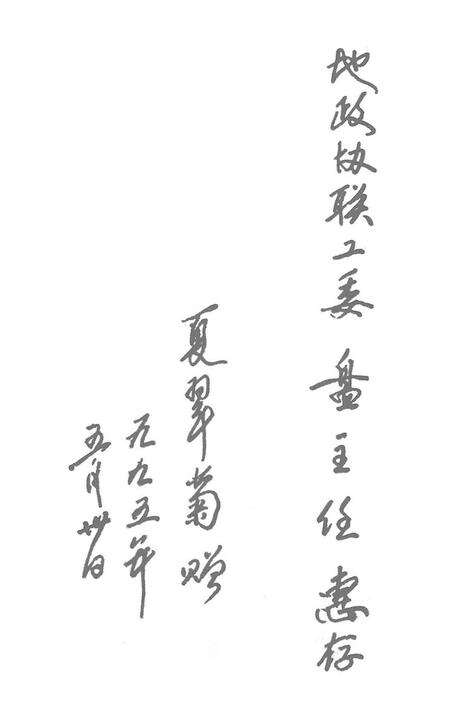 地政协联工委 盘主任 惠存
夏翠菊 赠
一九九五年
五月卅日